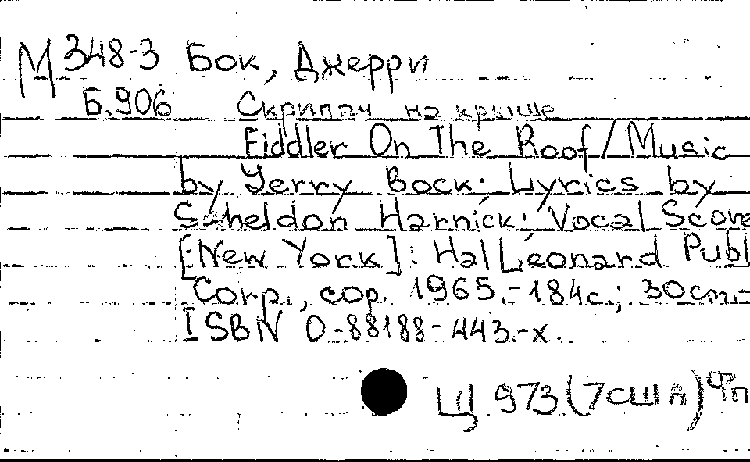 М 348-3 Бок, Джерри
Б.906 Скрипач на крыше
Fiddler On The Roof/Music
by Jerry Bock; Lyrics by
Scheldon Harnick; Vocal Score
[New York]: Hal Leonard Publ
Corp., cop. 1965.-184с.; 30cm.-
ISBN 0-88188-443-x.
Щ 973.(7США)